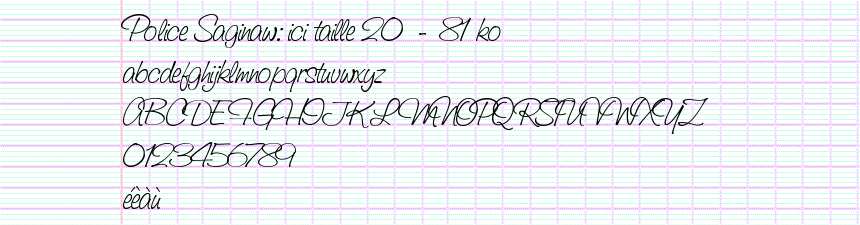 Police Saginaw: ici taille 20 - 81 ko
abcdefghijklmnopqrstuvwxyz
ABCDEFGHIJKLMNOPQRSTUVWXYZ
0123456789
éèàù